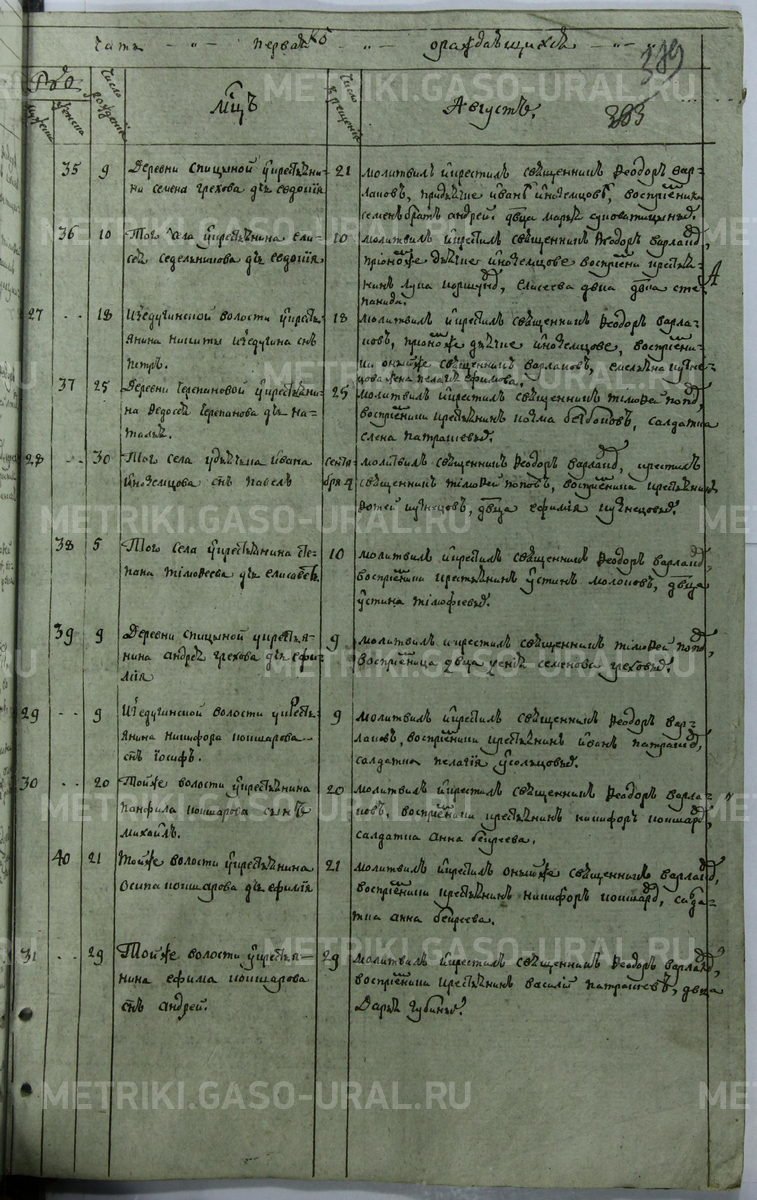 Часть первая о рождающихся
389
383
Число рождения
Мцъ
Число крещения
Августъ.
35 9 Деревни Спицыной у крестьяни-
на семена грехова дчь евдокия
21 молитвилъ и крестилъ священникъ Феодоръ вар-
лаковъ, воспріемники
семенъ братъ андрей. двца марья
36 10 Тогъ села у крестьянина ели-
сея седельникова дчь евдокия
10 молитвилъ и крестилъ священникъ Феодоръ варлаковъ,
воспріемники крестья-
нинъ лука елисеева двца сте-
панида.
27 18 волости у кресть-
янина никиты снъ
петръ.
18 молитвилъ и крестилъ священникъ Феодоръ варла-
ковъ, воспріемни-
ки онъ же священникъ варлаковъ,
жена пелагея ефимова.
37 25 Деревни черепановой у крестьяни-
на Федосея черепанова дчь на-
талья.
25 молитвилъ и крестилъ священникъ тимофей поповъ,
воспріемники крестьянинъ козма салдатка
елена патрашевыхъ.
28 30 Тогъ села дьячка ивана
иноземцова снъ павелъ
сентя-
бря 4
молитвилъ священникъ Феодоръ варлаковъ, крестилъ
священникъ тимофей поповъ, воспріемники крестьянинъ
фотей кузнецовъ, двца ефимія кузнецовыхъ.
38 5 Тогъ села у крестьянина сте-
пана тимофеева дчь елисавета
10 молитвилъ и крестилъ священникъ Феодоръ варлаковъ,
воспріемники крестьянинъ устинъ молоковъ, двца
устина тимофіевыхъ.
39 9 Деревни спицыной у крестья-
нина андрея грехова дчь ефи-
мія
9 молитвилъ и крестилъ священникъ тимофей поповъ,
воспріемница двца ксенія семенова греховыхъ.
29 9 волости у кресть-
янина никифора кошкарова
снъ иосифъ.
9 молитвилъ и крестилъ священникъ Феодоръ вар-
лаковъ, воспріемники крестьянинъ иванъ
салдатка пелагія усольцовыхъ.
30 20 Тойже волости у крестьянина
панфила кошкарова сынъ
михайлъ.
20 молитвилъ и крестилъ священникъ Феодоръ варла-
ковъ, воспріемники крестьянинъ никифоръ кошкаровъ,
салдатка анна
40 21 Тойже волости у крестьянина
осипа кошкарова дчь ефимія
21 молитвилъ и крестилъ онъже священникъ варлаковъ,
воспріемники крестьянинъ никифоръ кошкаровъ, салда-
тка анна
31 29 Тойже волости у крестья-
нина ефима кошкарова
снъ андрей.
29 молитвилъ и крестилъ священникъ Феодоръ варлаковъ,
воспріемники крестьянинъ василій патрашевъ, двца
Дарья губиныхъ.
METRIKI.GASO-URAL.RU